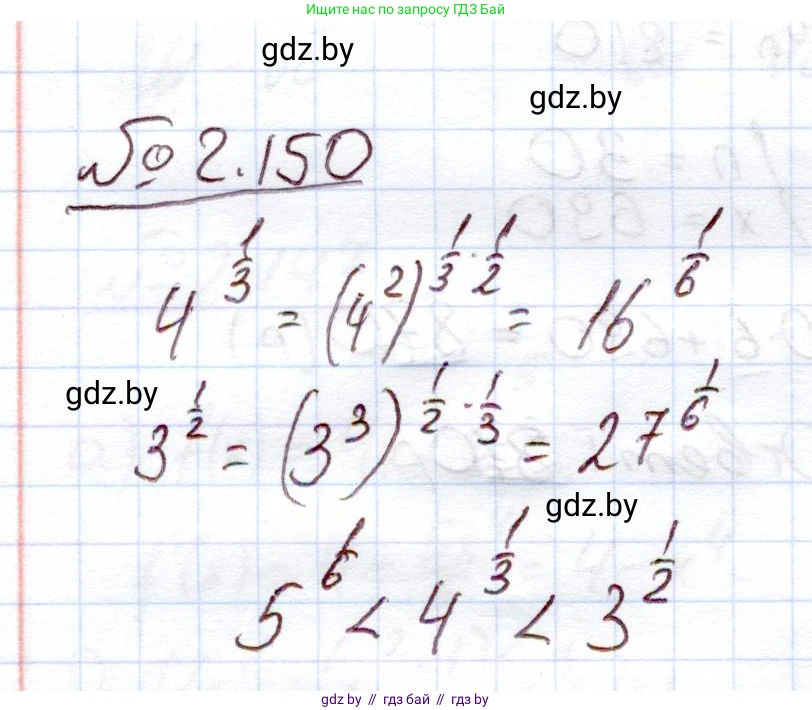 Ищите нас по запросу ГДЗ Бай
gdz.by
gdz.by
№ 2.150
4^(1/3) = (4^2)^(1/3 · 1/2) = 16^(1/6)
gdz.by
3^(1/2) = (3^3)^(1/2 · 1/3) = 27^(1/6)
gdz.by
5^(1/6) < 4^(1/3) < 3^(1/2)
gdz by // гдз бай // gdz by